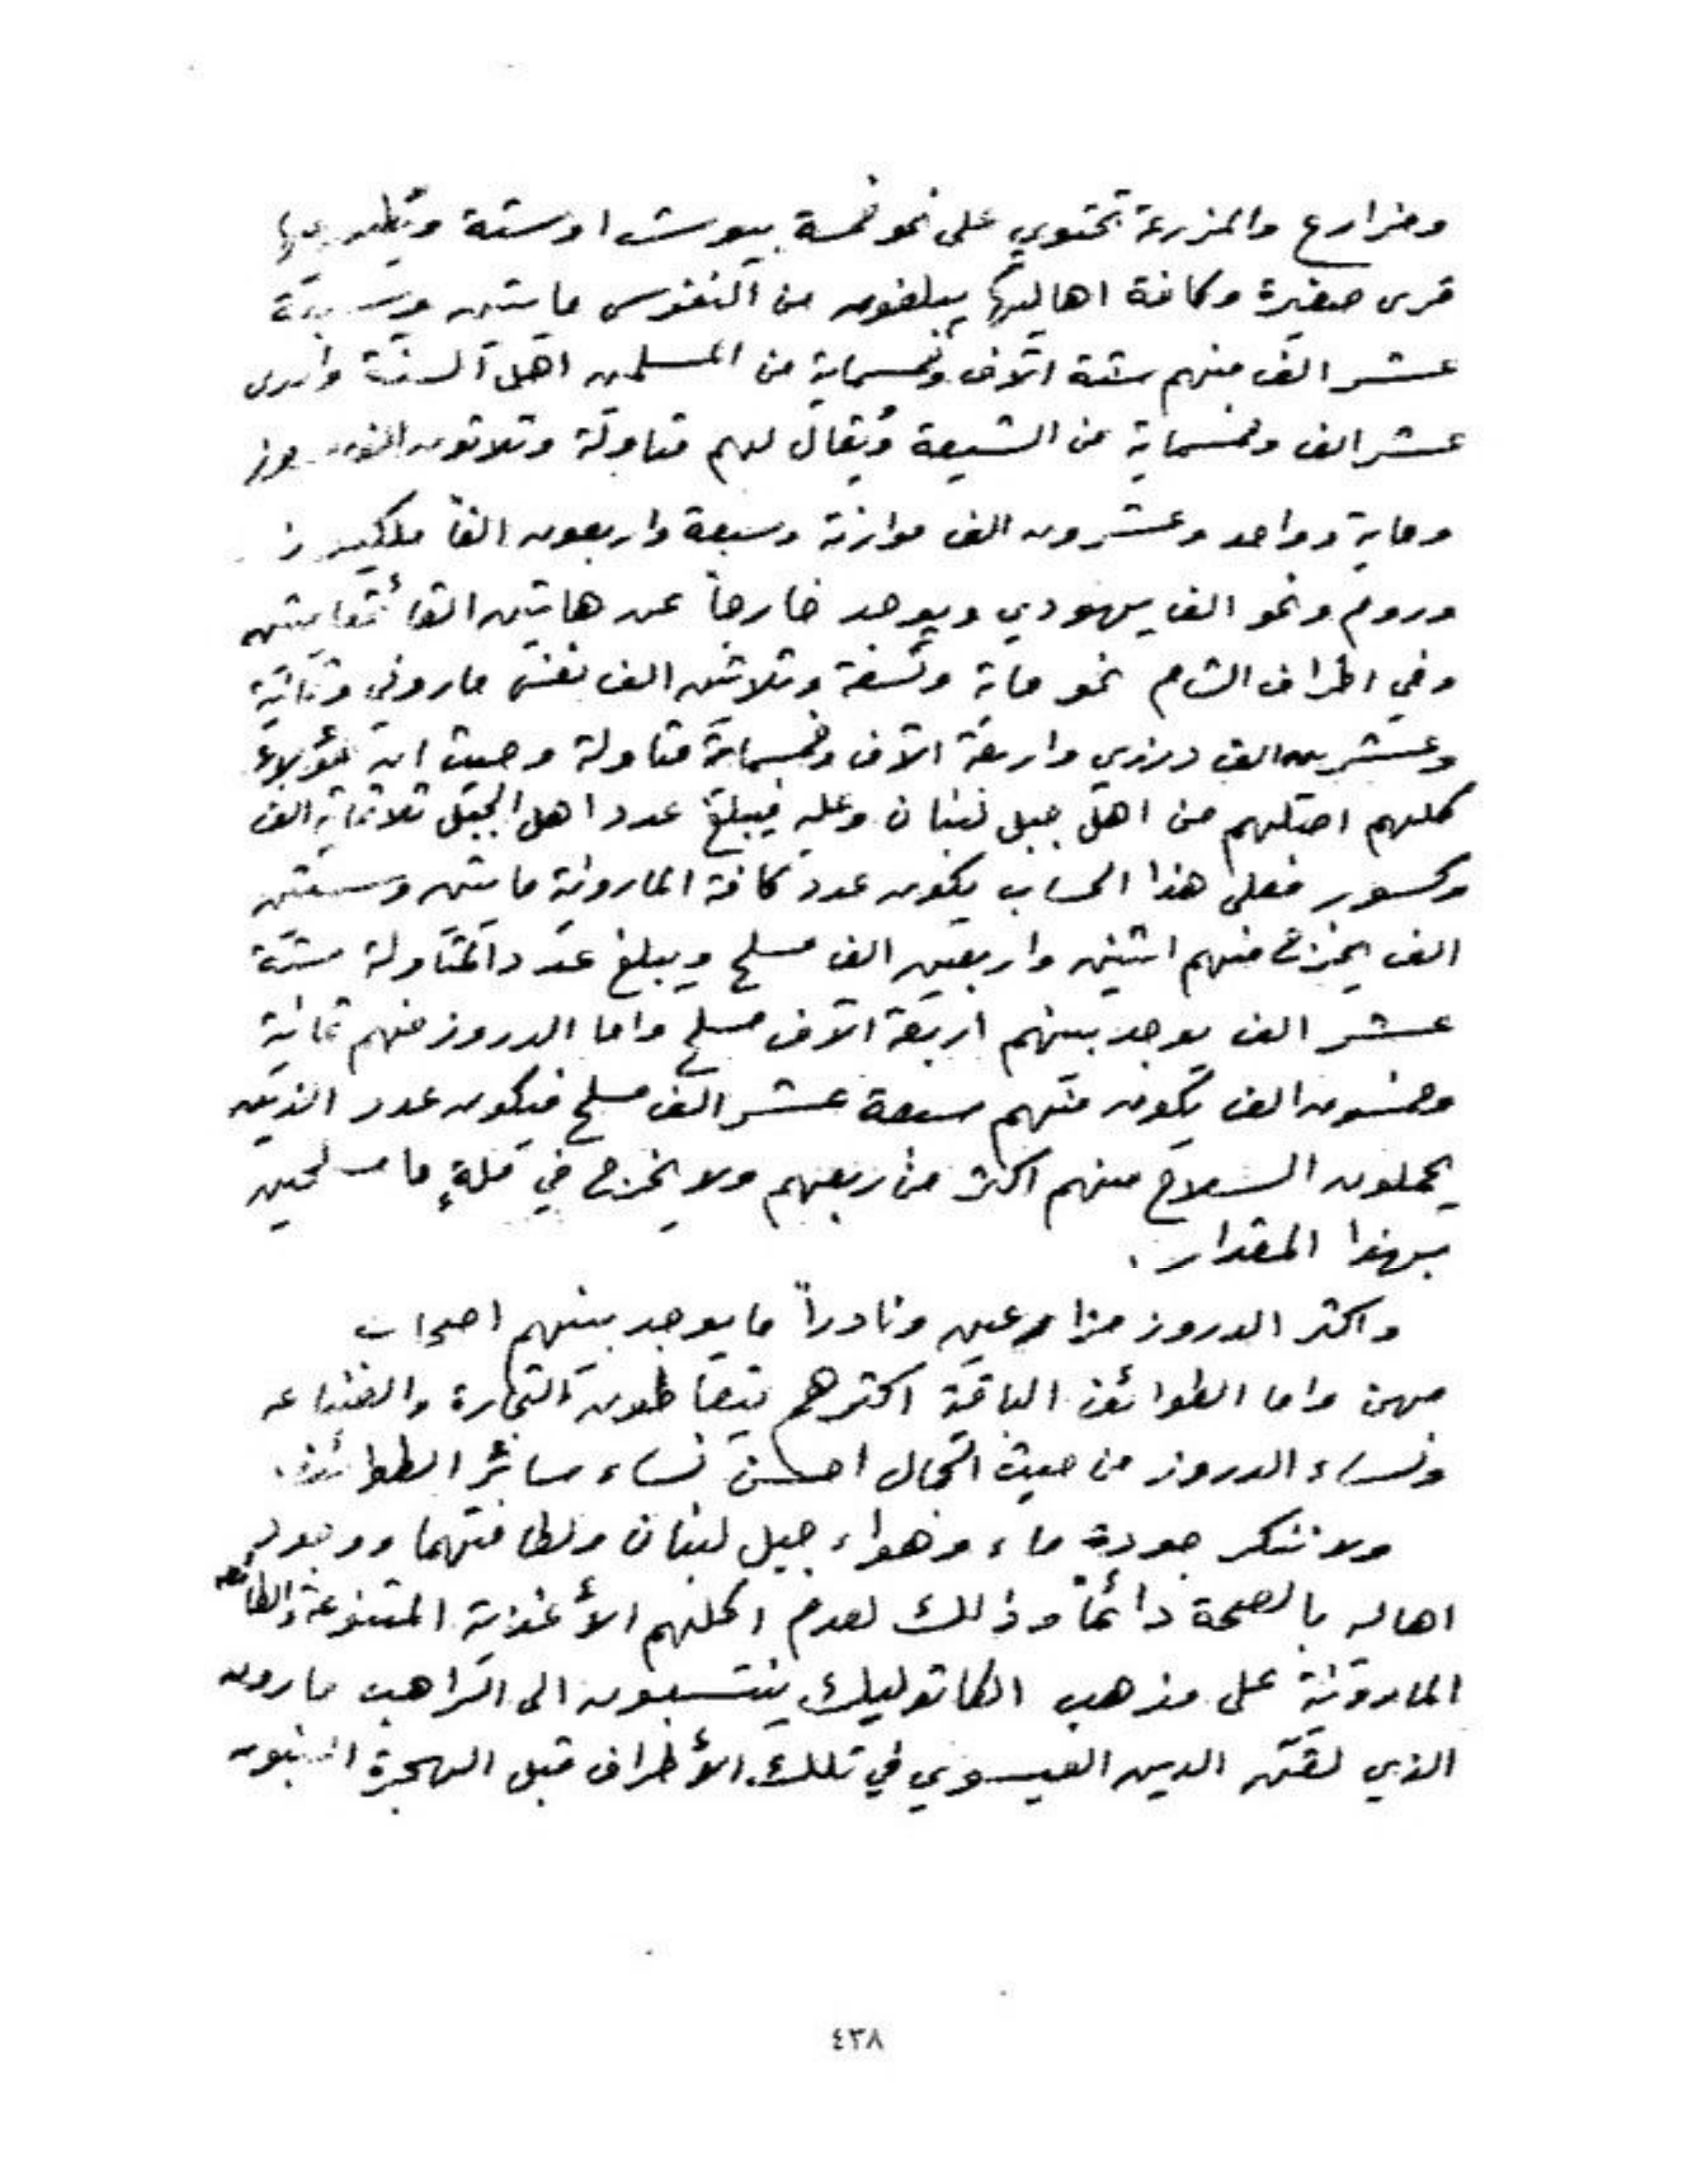 ومزارع والمزرعة تحتوي على نحو خمسة بيوت او ستة ويطلق عليها
قرى صغيرة وكافة اهاليها يبلغون من النفوس مايتين وسبعة
عشر الف منهم ستة آلاف وخمسماية من المسلمين اهل السنة واحدى
عشر الف وخمسماية من الشيعة ويقال لهم متاولة وثلاثون الف دروز
وماية وواحد وعشرون الف موارنة وسبعة واربعون الفاً ملكيون
وروم ونحو الف يهودي ويوجد خارجاً عن هاتين القائمقاميتين
وفي اطراف الشام نحو ماية وتسعة وثلاثين الف نفس ماروني وثمانية
وعشرين الف درزي واربعة آلاف وخمسماية متاولة وحيث ان هؤلاء
كلهم اصلهم من اهل جبل لبنان وعليه فيبلغ عدد اهل الجبل ثلاثماية الف
وكسور فعلى هذا الحساب يكون عدد كافة المارونية مايتين وستين
الف يخرج منهم اثنين واربعين الف مسلح ويبلغ عدد المتاولة ستة
عشر الف يوجد بينهم اربعة آلاف مسلح واما الدروز منهم ثمانية
وخمسون الف يكون منهم سبعة عشر الف مسلح فيكون عدد الذين
يحملون السلاح منهم اكثر من ربعهم ولا يخرج في ملةٍ ما مسلحين
بهذا المقدار .
واكثر الدروز مزارعين ونادراً ما يوجد بينهم اصحاب
مهن واما الطوائف الباقية اكثرهم يتعاطون التجارة والصناعه
ونساء الدروز من حيث الجمال احسن نساء سائر الطوائف .
ولا ننكر جودة ماء وهواء جبل لبنان ولطافتهما ووجود
اهاله بالصحة دائماً وذلك لعدم اكلهم الأغذية المتنوعة والطائفه
المارونية على مذهب الكاتوليك ينتسبون الى الراهب مارون
الذي لقّن الدين العيسوي في تلك الأطراف قبل الهجرة النبويه
٤٣٨